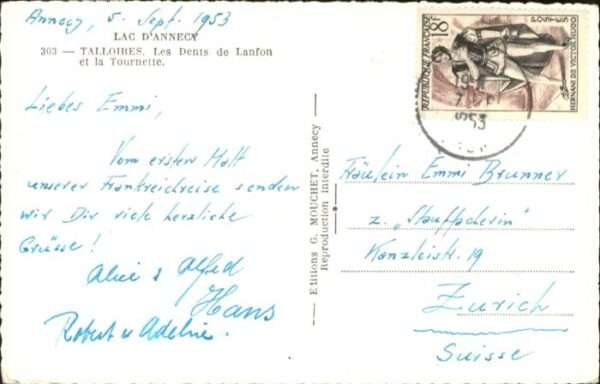 Annecy, 5. Sept. 1953
LAC D'ANNECY
303 — TALLOIRES. Les Dents de Lanfon
et la Tournette.
Liebes Emmi,
Vom ersten Halt
unserer Frankreichreise senden
wir Dir viele herzliche
Grüsse!
Alice & Alfred
Hans
Robert u Adeline.
Editions G. MOUCHET, Annecy
Reproduction Interdite
18F
RÉPUBLIQUE FRANÇAISE
POSTES
HERNANI DE VICTOR HUGO
1953
Fräulein Emmi Brunner
z. „Stauffacherin"
Kanzleistr. 19
Zürich
Suisse